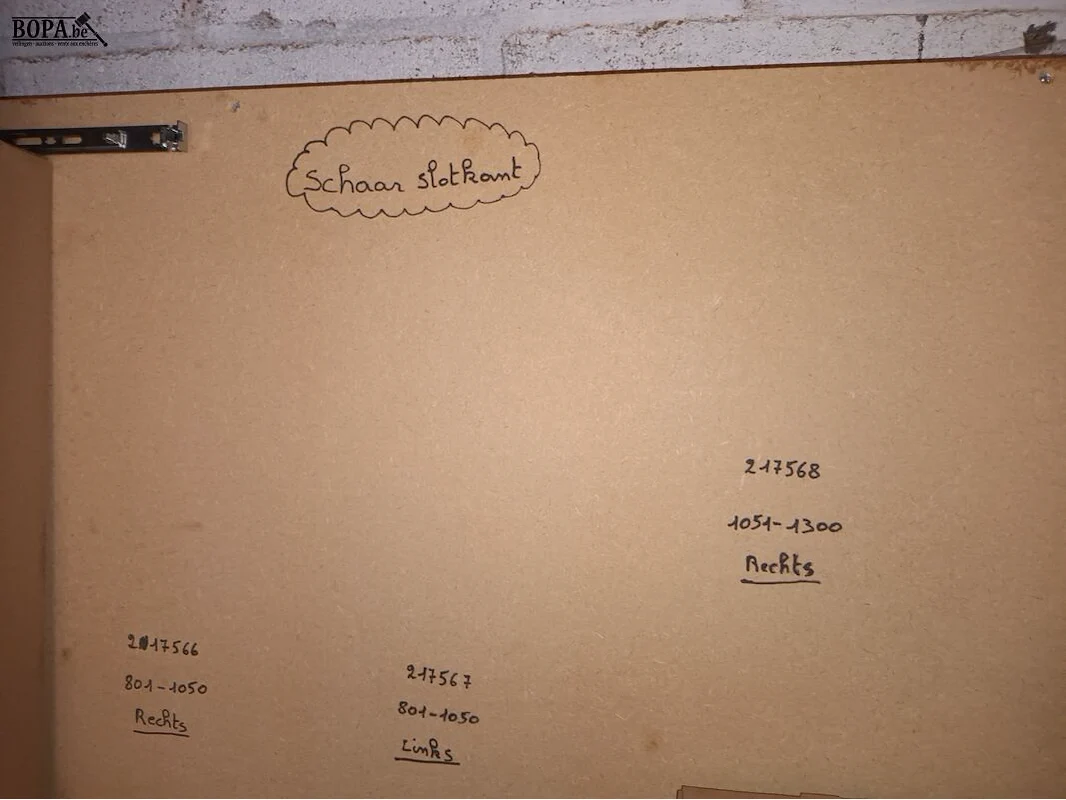 BOPA.be
veilingen - auctions - vente aux enchères
Schaar slotkant
217568
1051-1300
Rechts
217566
801-1050
Rechts
217567
801-1050
Links